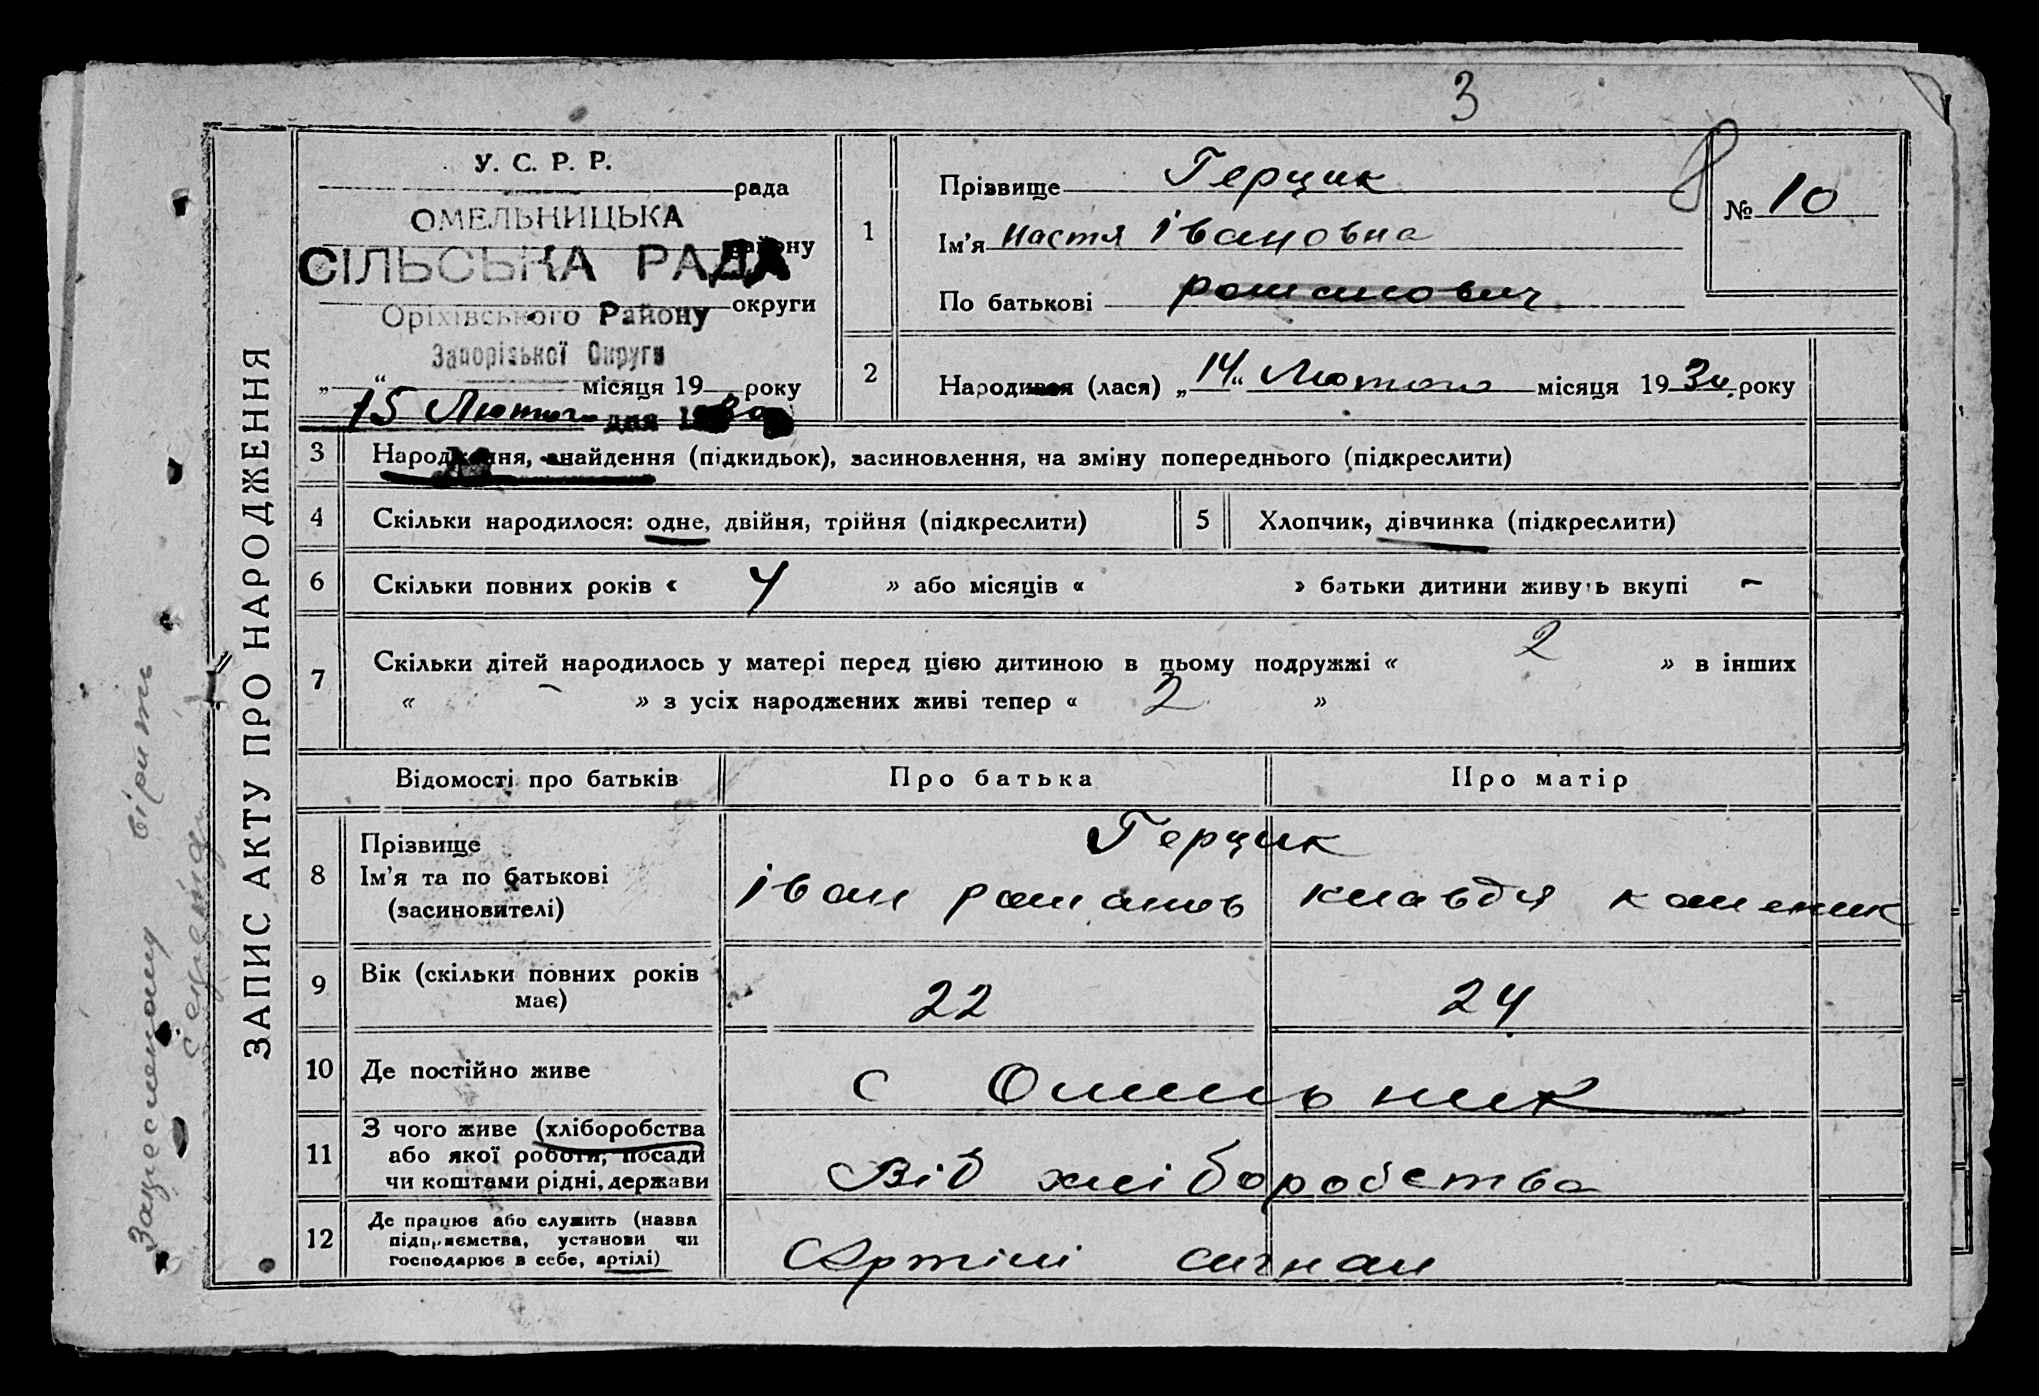 3
У. С. Р. Р.
рада
ОМЕЛЬНИЦЬКА
району
СІЛЬСЬКА РАДА
округи
Оріхівського Району
Запорізької Округи
„ “ місяця 19 року
15 Лютого дня 1930
1
Прізвище Герцик
Ім’я Настя Івановна
По батькові романович
8
№ 10
2
Народився (лася) „14“ Лютого місяця 1930 року
ЗАПИС АКТУ ПРО НАРОДЖЕННЯ
3 Народження, знайдення (підкидьок), засиновлення, на зміну попереднього (підкреслити)
4 Скільки народилося: одне, двійня, трійня (підкреслити)
5 Хлопчик, дівчинка (підкреслити)
6 Скільки повних років « 4 » або місяців « » батьки дитини живуть вкупі –
7 Скільки дітей народилось у матері перед цією дитиною в цьому подружжі « 2 » в інших
« – » з усіх народжених живі тепер « 2 »
Відомості про батьків Про батька Про матір
8 Прізвище
Ім’я та по батькові
(засиновителі)
Герцик
Іван романов клавдя
9 Вік (скільки повних років
має)
22 24
10 Де постійно живе
с Омельник
11 З чого живе (хліборобства
або якої роботи, посади
чи коштами рідні, держави
Від хліборобства
12 Де працює або служить (назва
підприємства, установи чи
господарює в себе, артілі)
Артілі сигнал
Закресленому вірить